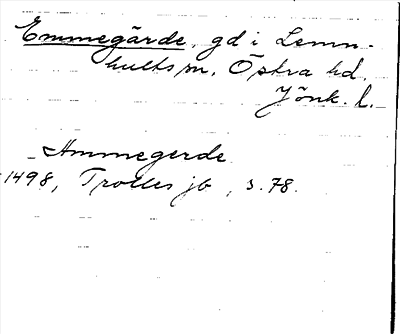 Emmegärde, gd i Lemn-
hults sn, Östra hd.
Jönk. l.
Ammegerde
1498, Trolles jb, s. 78.